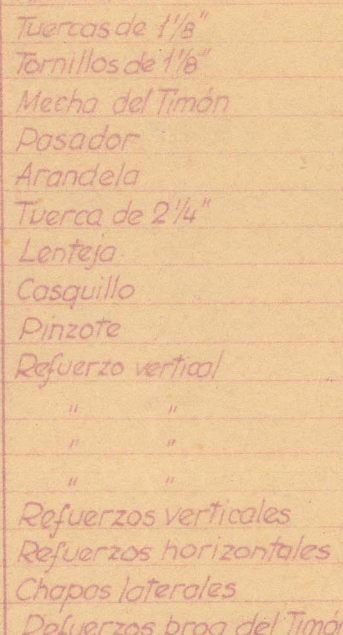 Tuercas de 1 1/8"
Tornillos de 1 1/8"
Mecha del Timón
Pasador
Arandela
Tuerca de 2 1/4"
Lenteja
Casquillo
Pinzote
Refuerzo vertical
" "
" "
" "
Refuerzos verticales
Refuerzos horizontales
Chapas laterales
Refuerzos braa del Timón